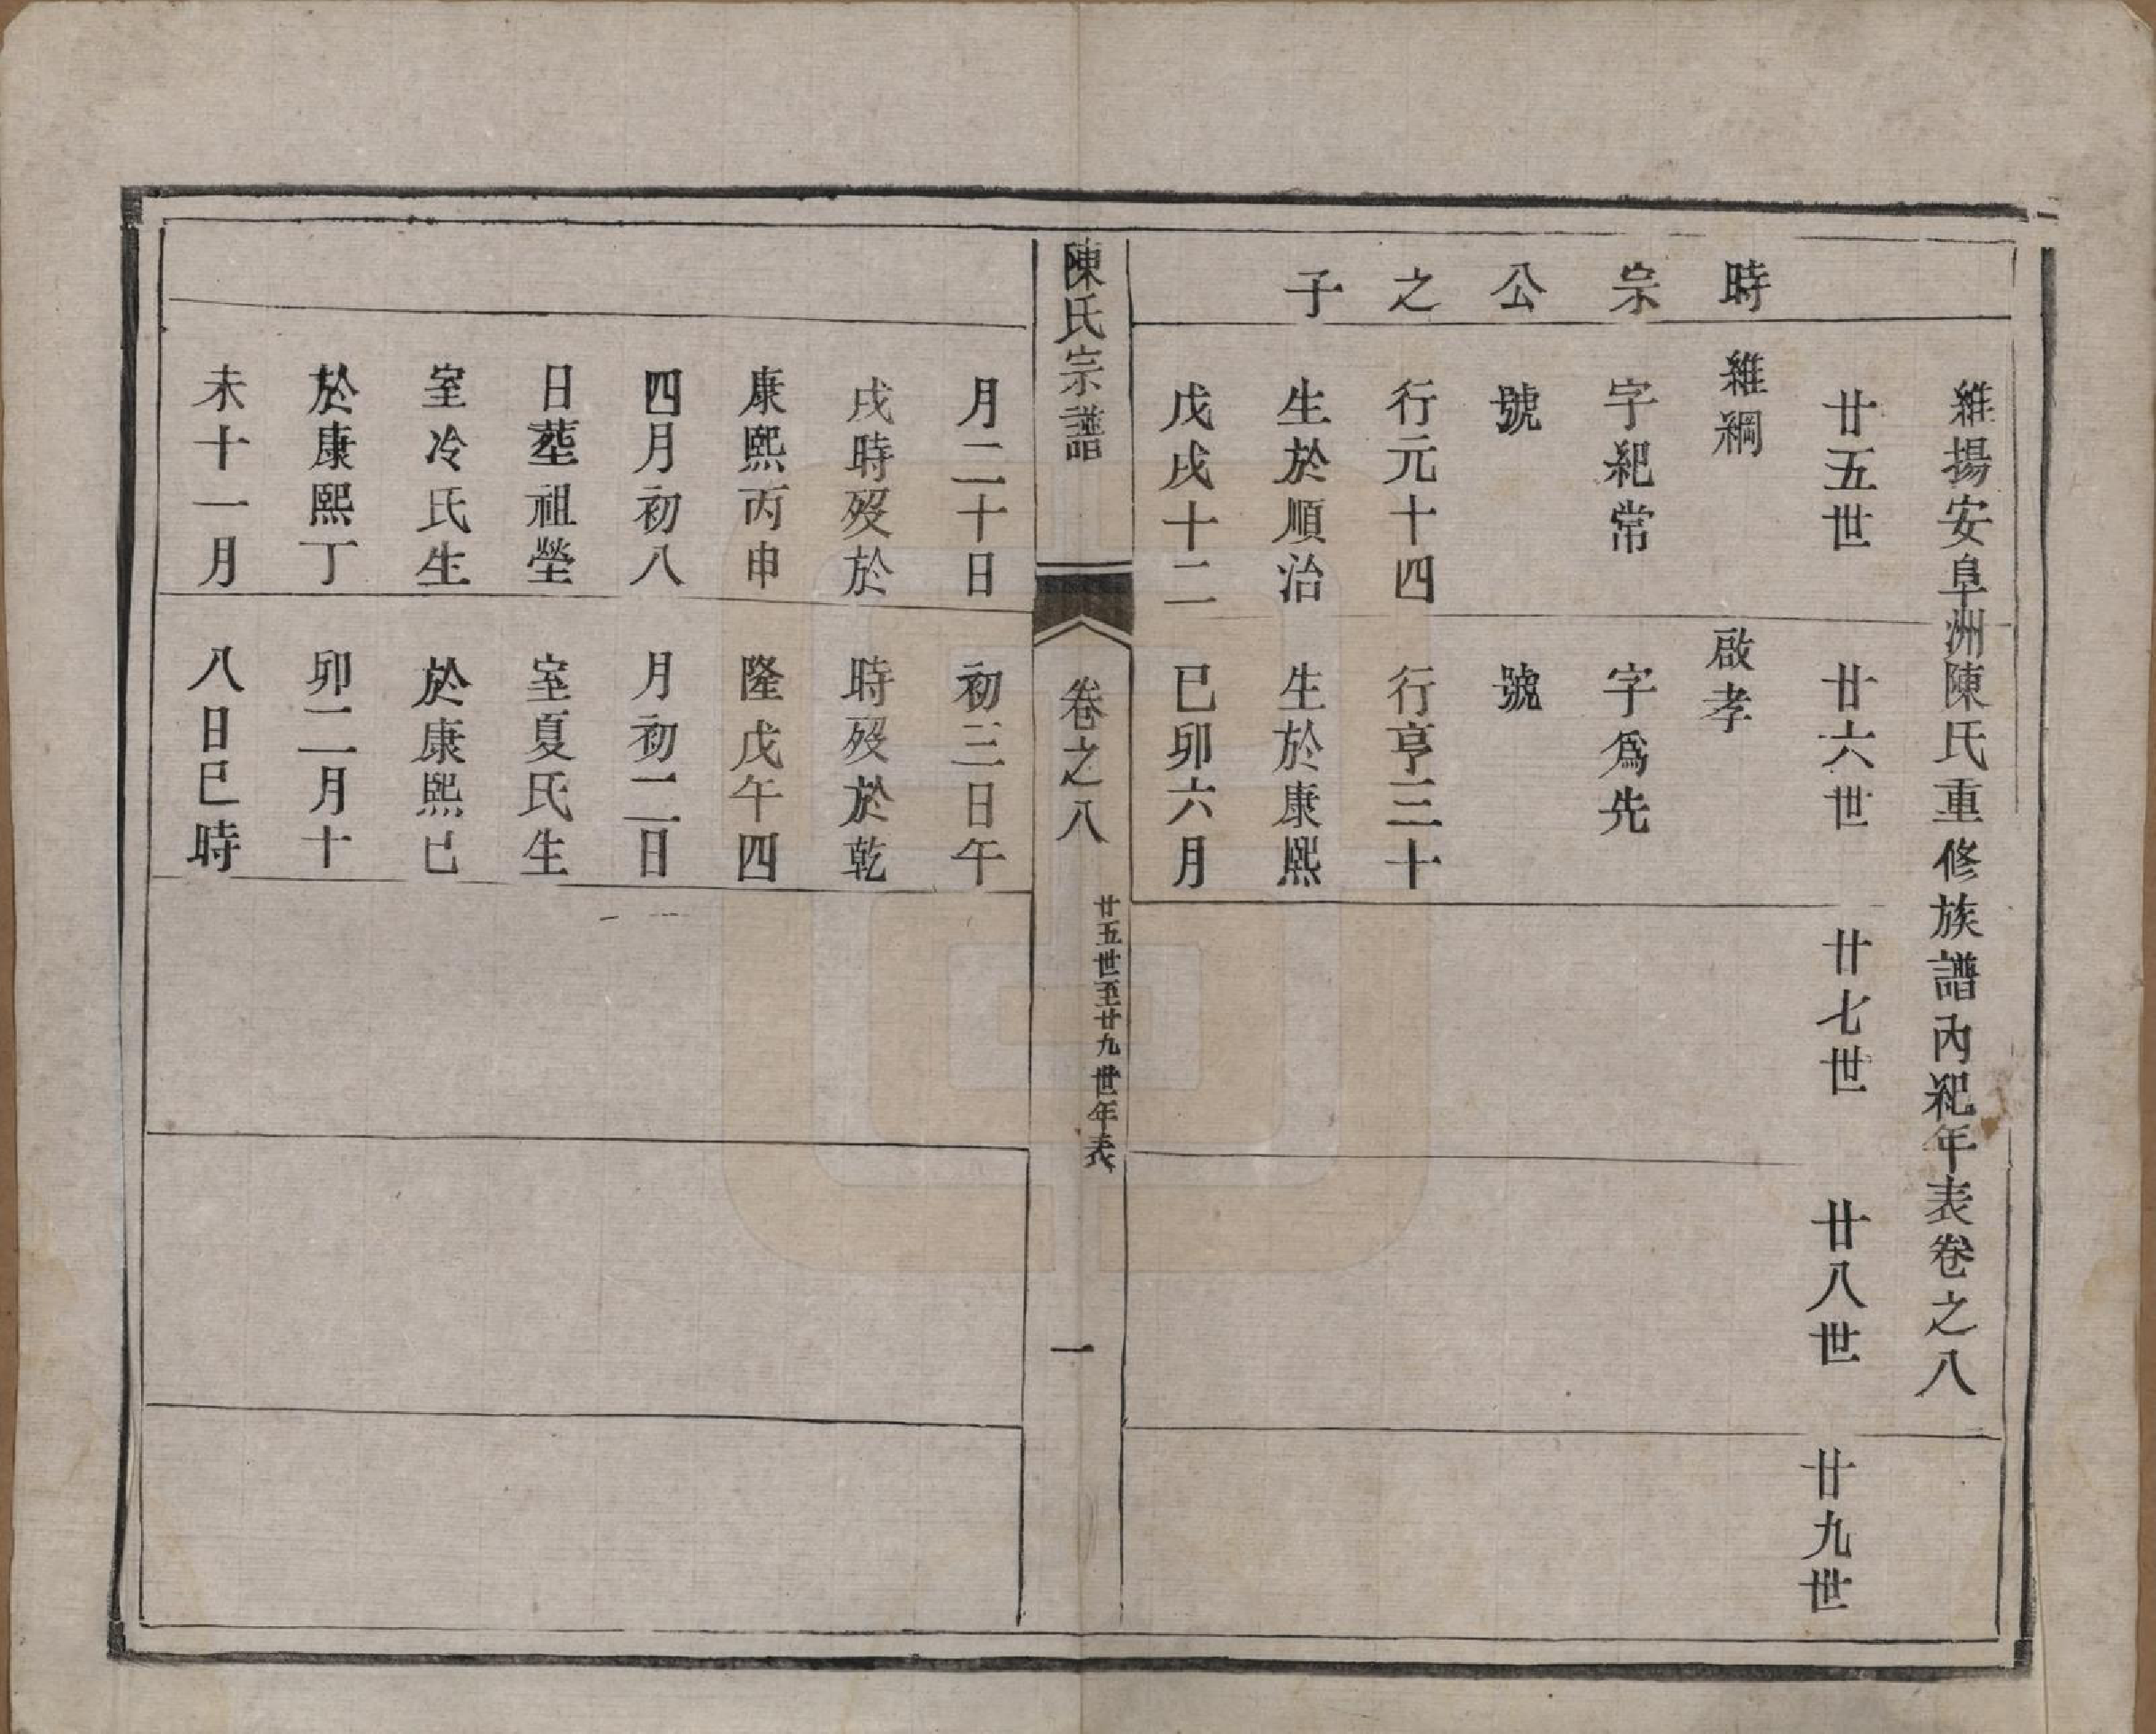 維揚安阜洲陳氏重修族譜內紀年表卷之八
廿五世 廿六世 廿七世 廿八世 廿九世
時宗公之子
維綱
字紀常
號
行元十四
生於順治
戊戌十二
啟孝
字為先
號
行亨三十
生於康熙
已卯六月
陳氏宗譜
卷之八
廿五世至廿九世年表
一
月二十日
戌時歿於
康熙丙申
四月初八
日塟祖塋
室冷氏生
於康熙丁
未十一月
初三日午
時歿於乾
隆戊午四
月初二日
室夏氏生
於康熙已
卯二月十
八日巳時